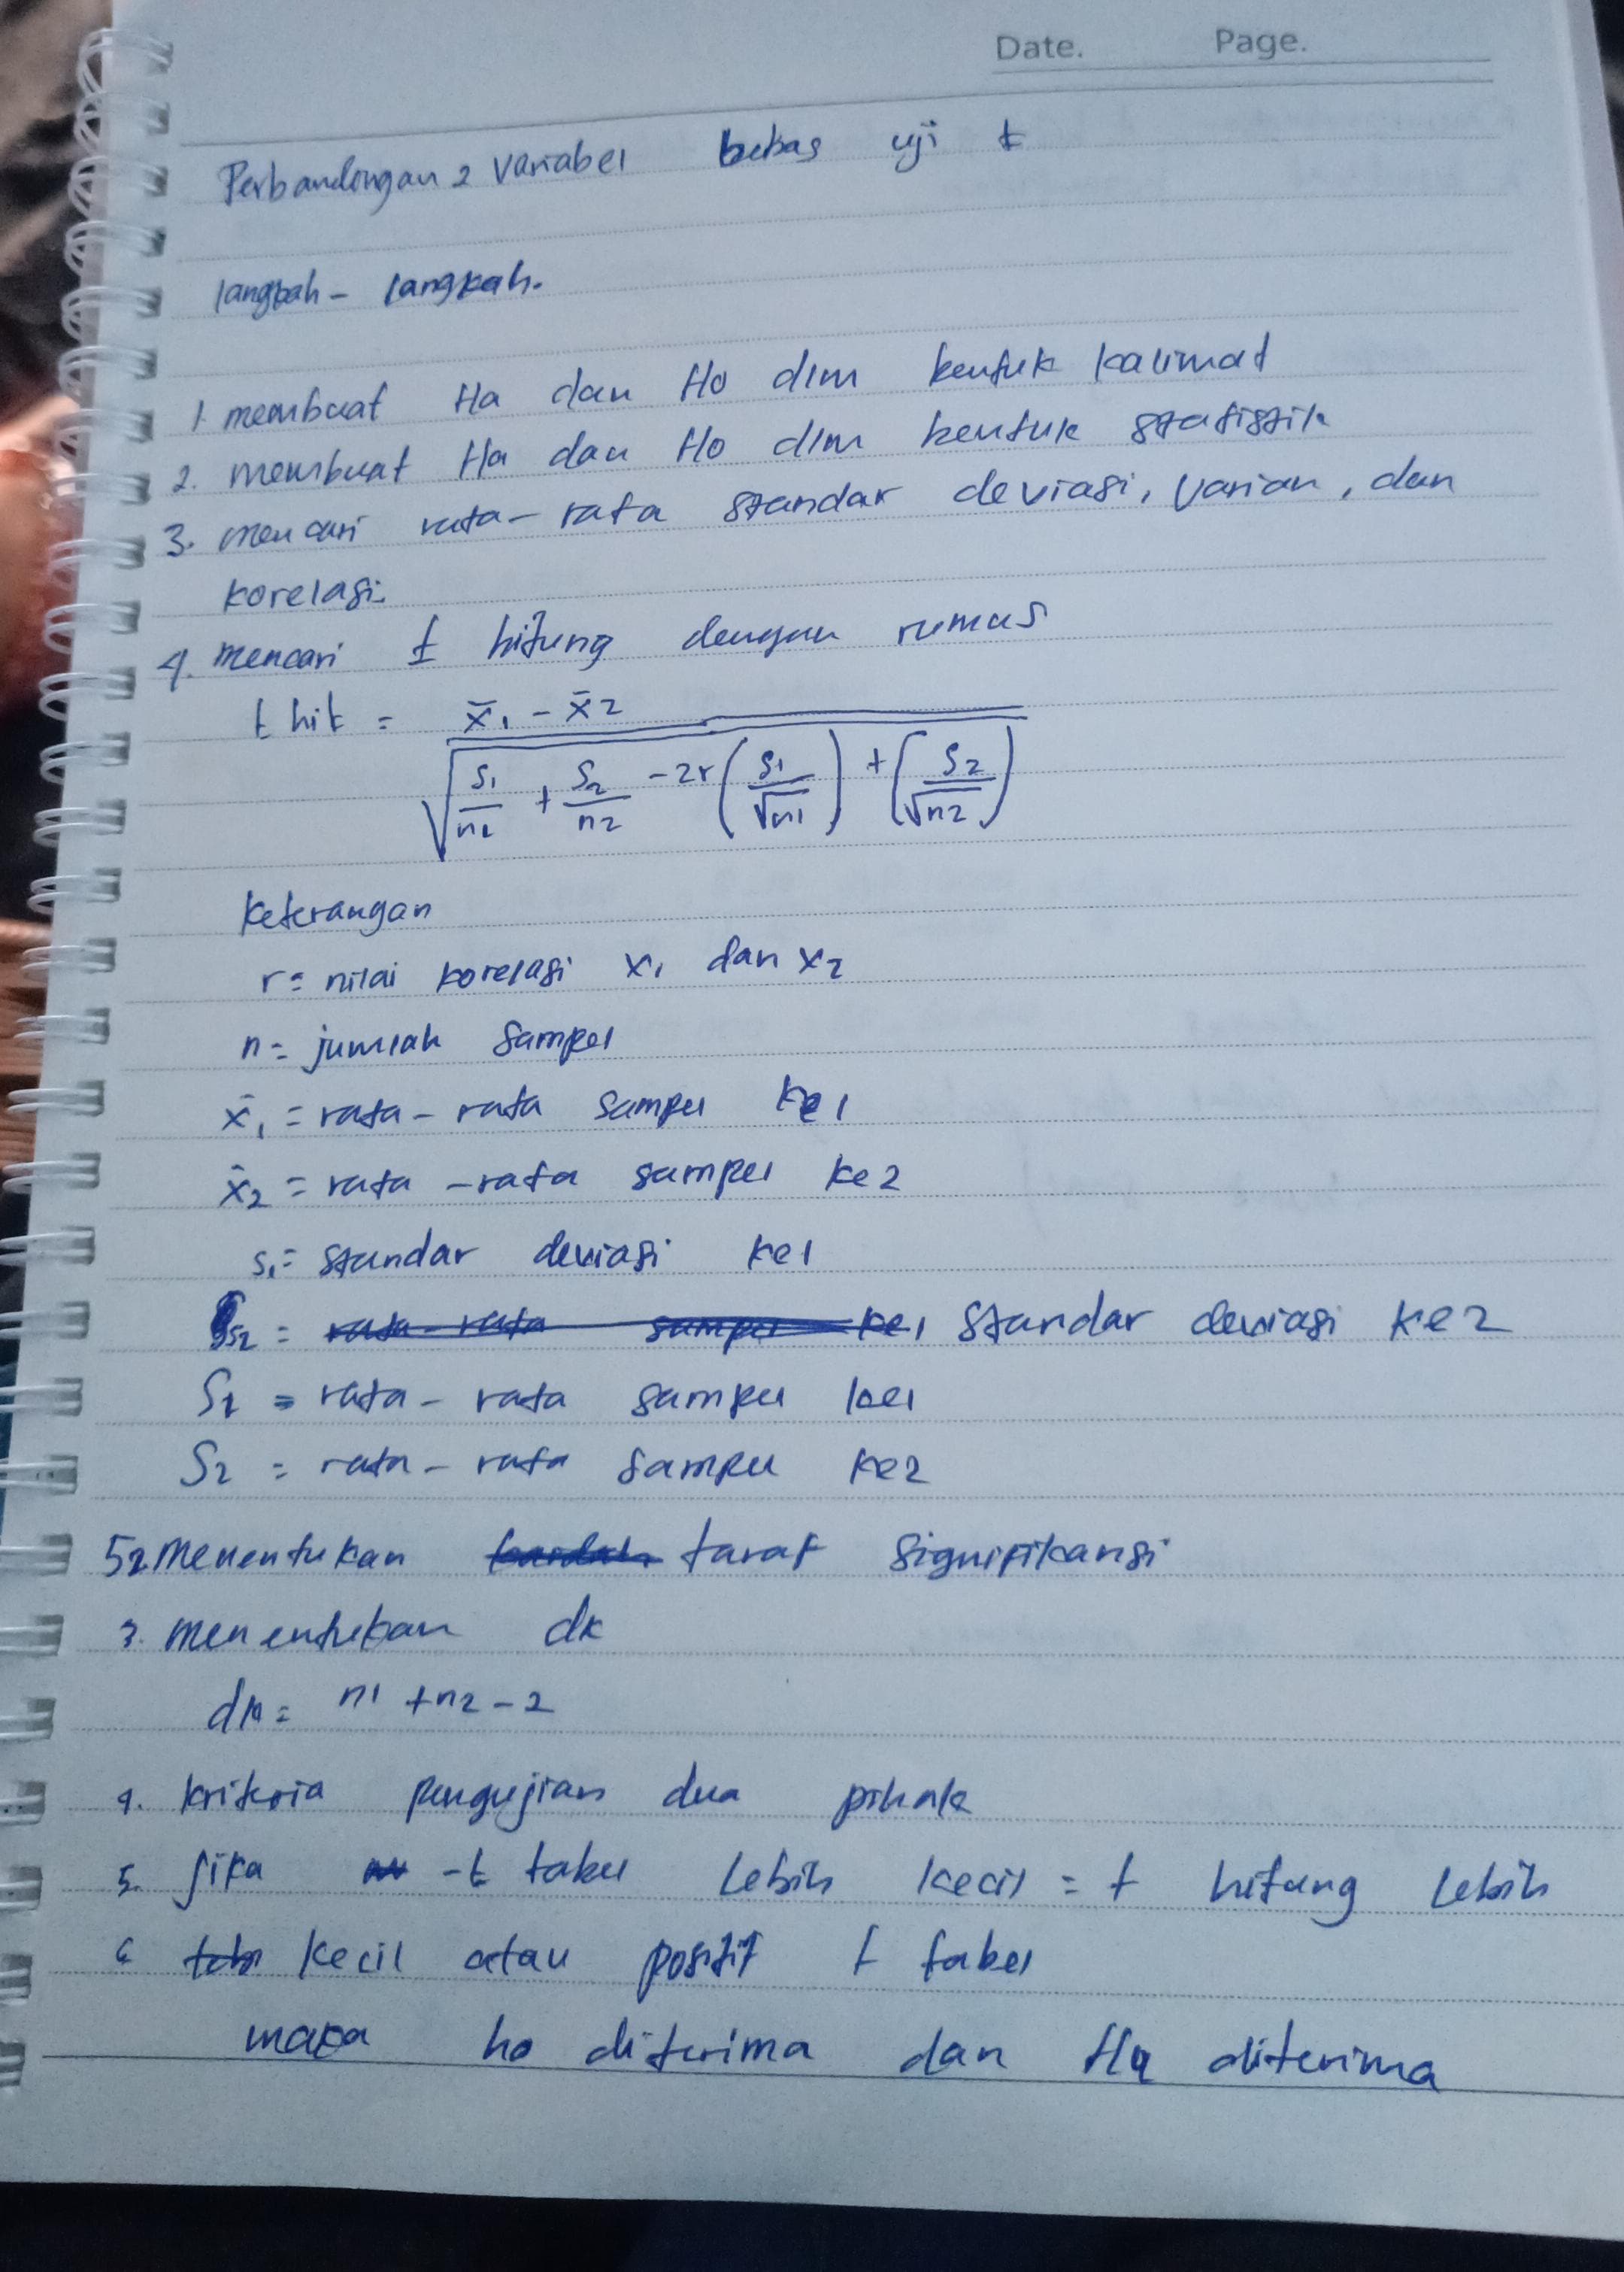 Date. Page.
Perbandingan 2 variabel bebas uji t
langkah - langkah.
1. membuat Ha dan Ho dlm bentuk kalimat
2. membuat Ha dan Ho dlm bentuk statistik
3. mencari rata-rata standar deviasi, varian, dan
korelasi.
4. mencari t hitung dengan rumus
t hit = x̄1 - x̄2
√ S1/n1 + S2/n2 - 2r (S1/√n1) + (S2/√n2)
keterangan
r = nilai korelasi x1 dan x2
n = jumlah sampel
x̄1 = rata-rata sampel ke1
x̄2 = rata-rata sampel ke2
s1 = standar deviasi ke1
s2 = rata-rata sampel ke1 standar deviasi ke2
S1 = rata-rata sampel ke1
S2 = rata-rata sampel ke2
52 menentukan taraf signifikansi
3. menentukan dk
dk = n1 + n2 - 2
4. kriteria pengujian dua pihak
5. jika -t tabel lebih kecil = t hitung lebih
6 kecil atau positif t tabel
maka ho diterima dan Ha diterima